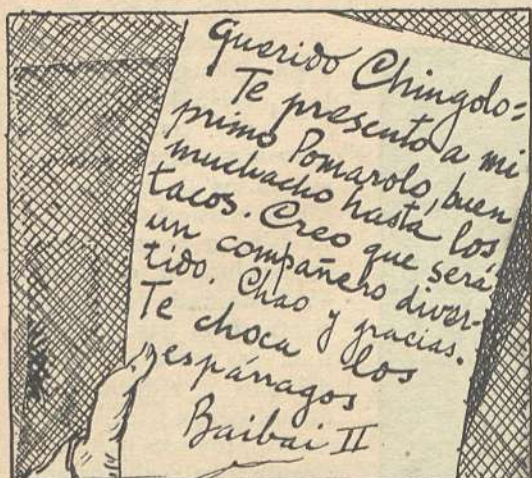 Querido Chingolo=
Te presento a mi
primo Pomarolo, buen
muchacho hasta los
tacos. Creo que será
un compañero diver-
tido. Chao y gracias.
Te choca los
espárragos
Baibai II